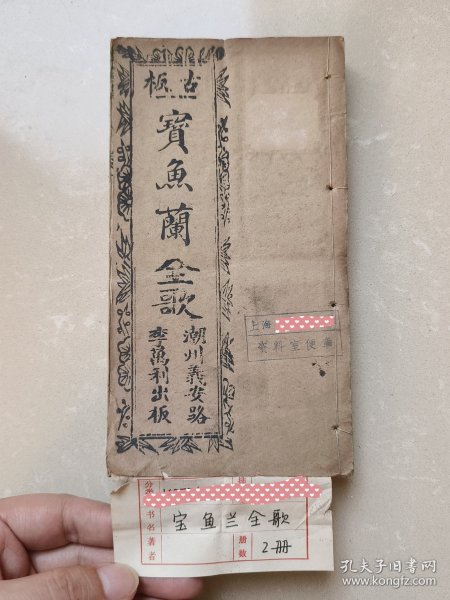 古板
寶魚蘭全歌
潮州義安路
李萬利出板
上海
資料室便章
分类
书名
著者
宝鱼兰全歌
册数
2册
孔夫子旧书网
www.kongfz.com